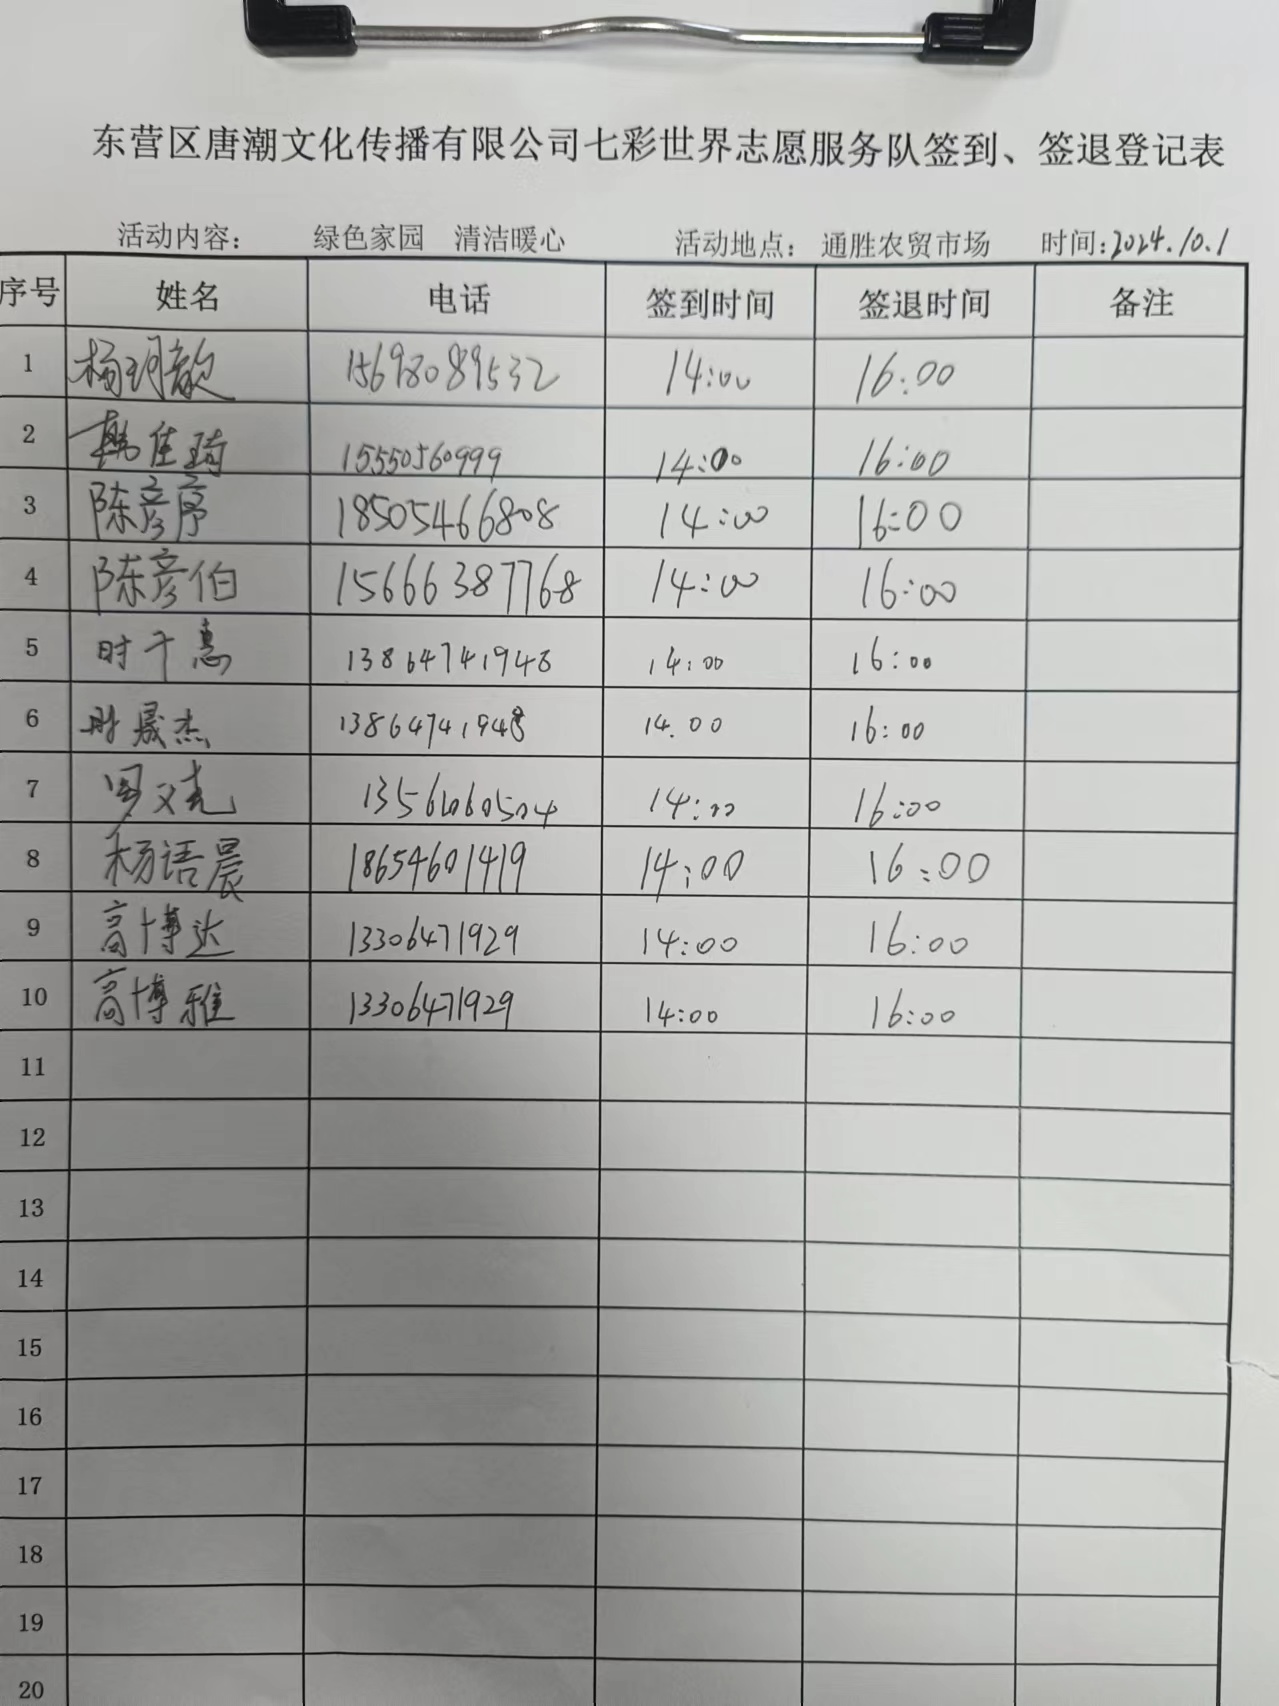 东营区唐潮文化传播有限公司七彩世界志愿服务队签到、签退登记表
活动内容： 绿色家园 清洁暖心 活动地点： 通胜农贸市场 时间:2024.10.1
序号 姓名 电话 签到时间 签退时间 备注
1 杨玥歆 15698089532 14:00 16:00
2 韩佳琦 15550560999 14:00 16:00
3 陈彦序 18505466808 14:00 16:00
4 陈彦伯 15666387768 14:00 16:00
5 时千惠 13864741948 14:00 16:00
6 时晟杰 13864741948 14.00 16:00
7 14:00 16:00
8 杨语晨 18654601419 14:00 16:00
9 高博达 13306471929 14:00 16:00
10 高博雅 13306471929 14:00 16:00
11
12
13
14
15
16
17
18
19
20